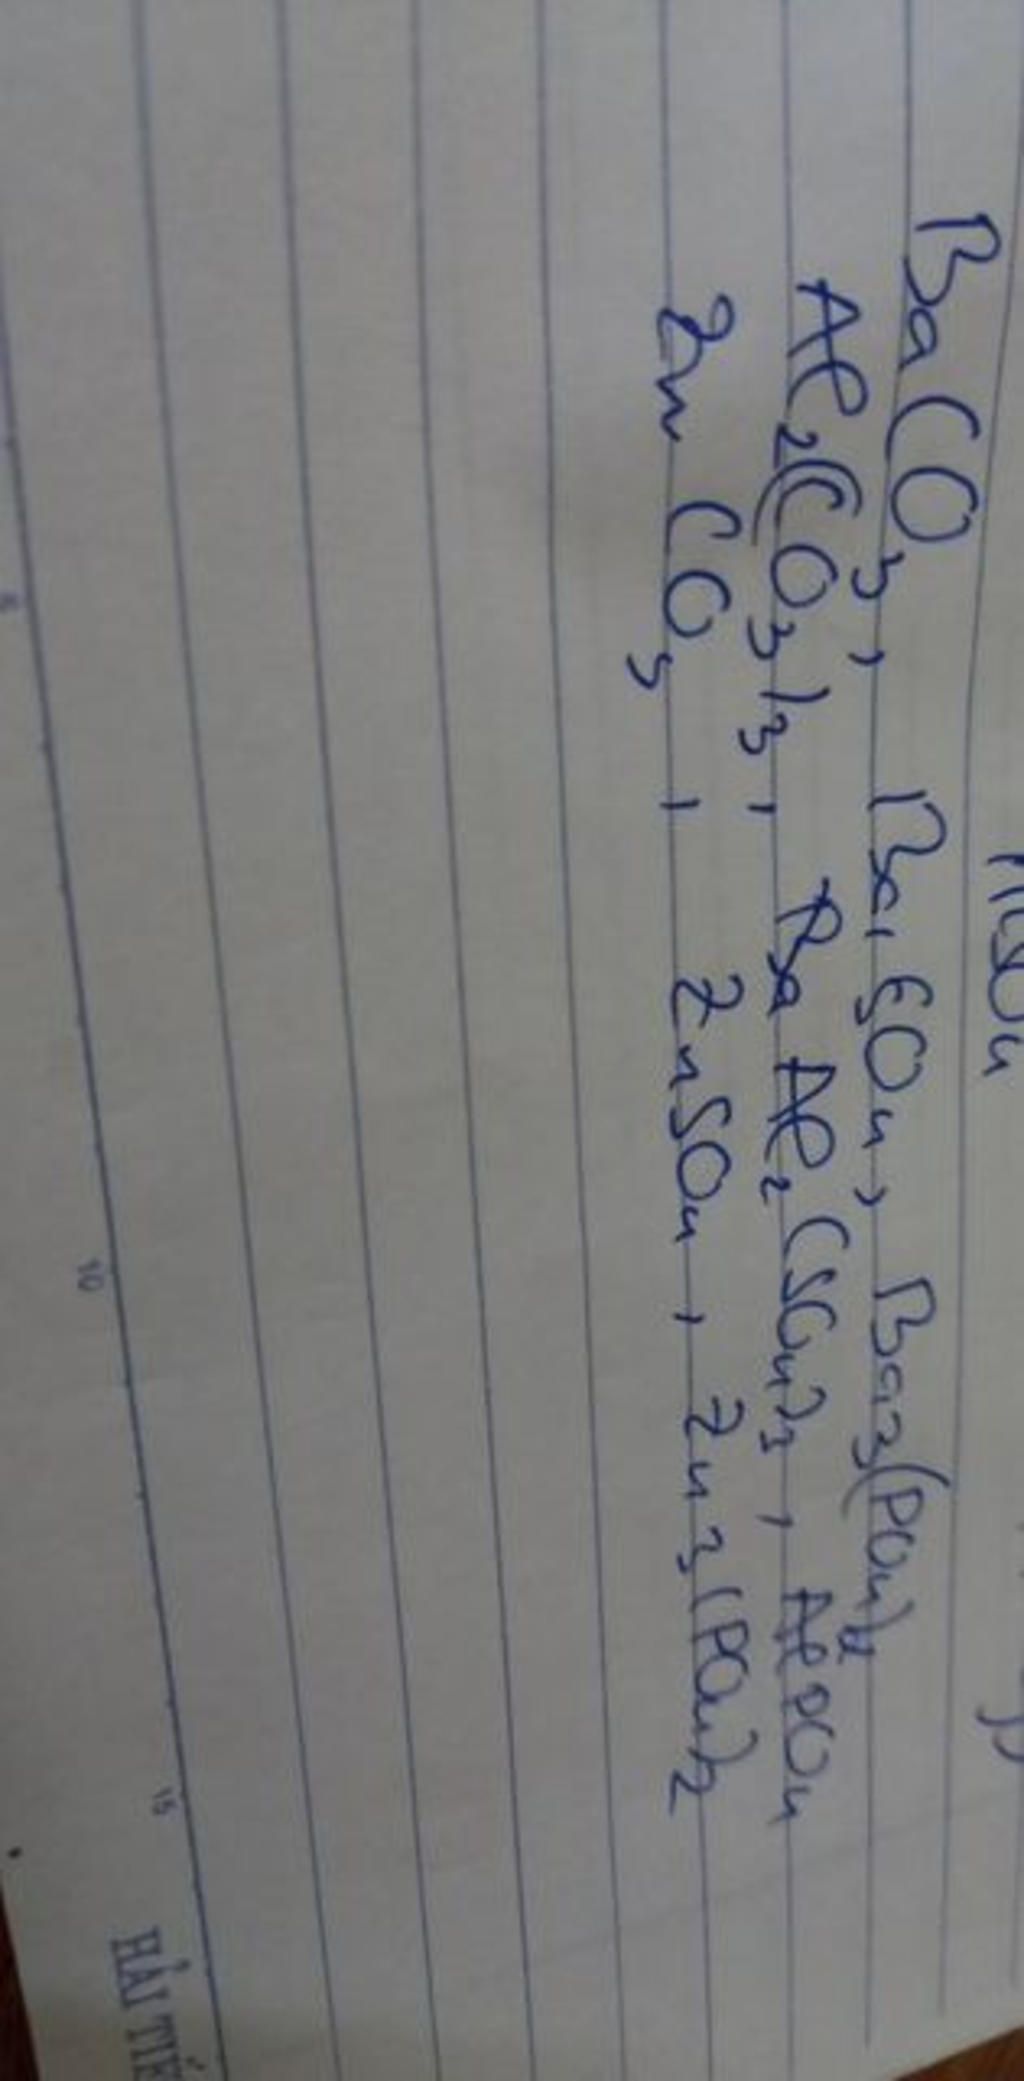 BaCO₃, BaSO₄, Ba₃(PO₄)₂
Al₂(CO₃)₃, Ba Al₂(SO₄)₃, AlPO₄
ZnCO₃, ZnSO₄, Zn₃(PO₄)₂
5 10 15
HẢI TIẾ